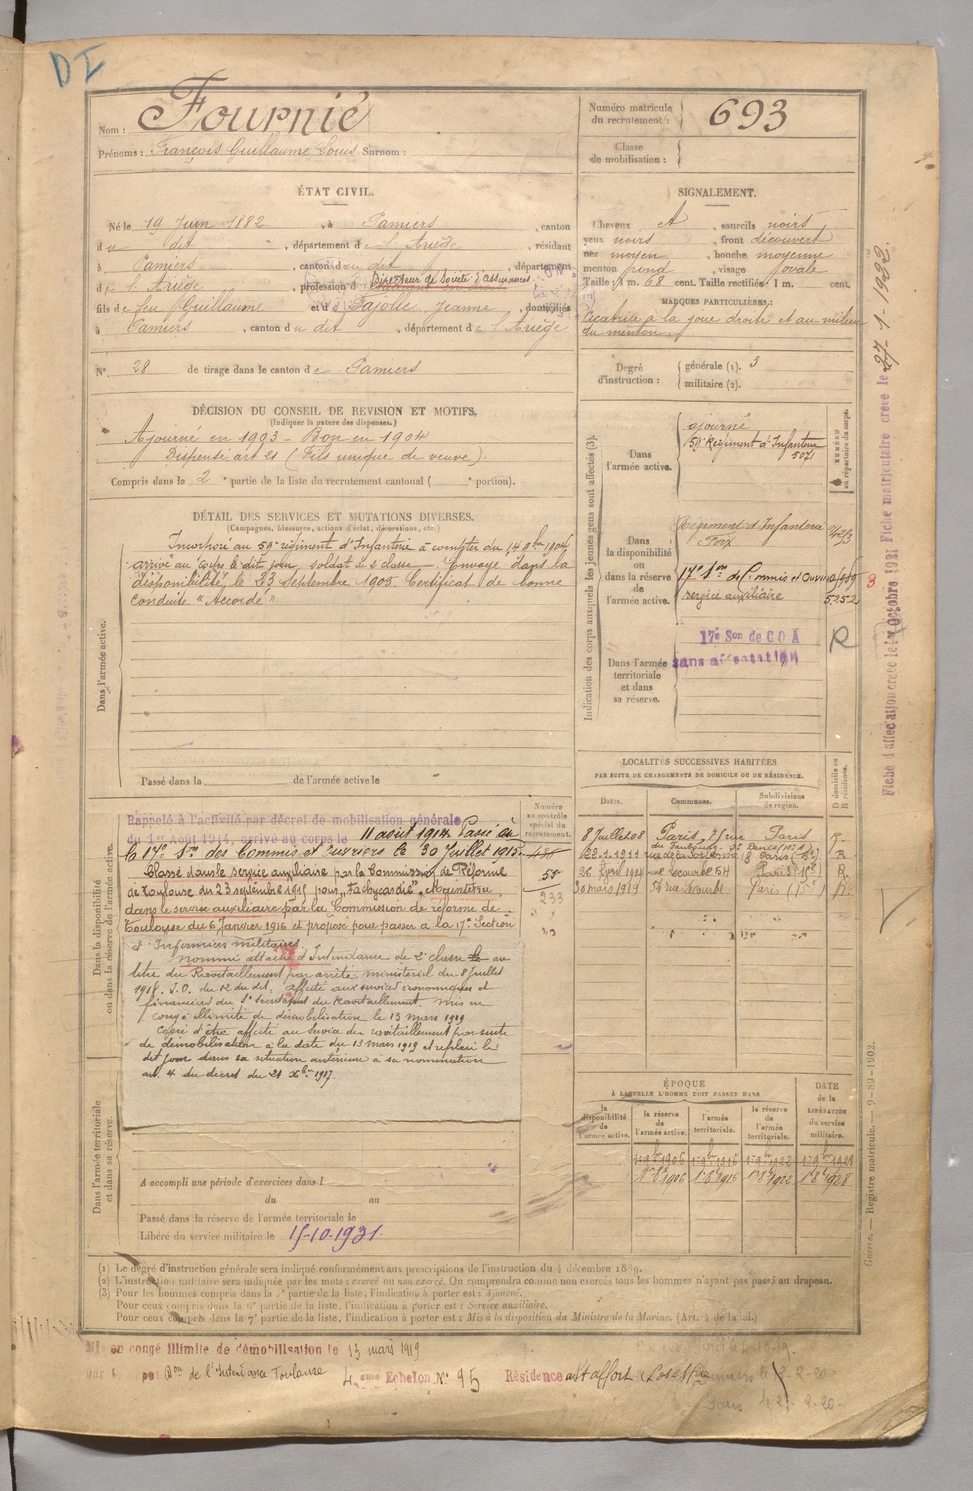 DI
Nom : Fournié
Prénoms : François Guillaume Louis Surnom :
Numéro matricule du recrutement : 693
Classe de mobilisation :
ÉTAT CIVIL.
Né le 19 Juin 1882, à Pamiers, canton
du dit, département de l'Ariège, résidant
à Pamiers, canton du dit, département
de l'Ariège, profession de Directeur de Société d'Assurances
fils de feu Guillaume et de Pajolle Jeanne, domiciliés
à Pamiers, canton du dit, département de l'Ariège
N° 28 de tirage dans le canton de Pamiers
SIGNALEMENT.
Cheveux, sourcils noirs
yeux noirs, front découvert
nez moyen, bouche moyenne
menton rond, visage ovale
Taille : 1 m. 68 cent. Taille rectifiée : 1 m. cent.
MARQUES PARTICULIÈRES :
Cicatrice à la joue droite et au milieu
du menton
Degré d'instruction : générale (1). 3
militaire (2).
DÉCISION DU CONSEIL DE REVISION ET MOTIFS.
(Indiquer la nature des dispenses.)
Ajourné en 1903 - Bon en 1904
Dispensé art 21 (Fils unique de veuve)
Compris dans la 2e partie de la liste du recrutement cantonal ( e portion).
DÉTAIL DES SERVICES ET MUTATIONS DIVERSES.
(Campagnes, blessures, actions d'éclat, décorations, etc.)
Dans l'armée active.
Incorporé au 59e régiment d'Infanterie à compter du 14 9bre 1904
arrivé au corps le dit jour, soldat de 2e classe. Envoyé dans la
disponibilité le 23 Septembre 1905. Certificat de bonne
conduite "Accordé"
Passé dans la de l'armée active le
Indication des corps auxquels les jeunes gens sont affectés (3).
Dans l'armée active.
ajourné
59e Régiment d'Infanterie
5071
NUMÉRO au répertoire du corps.
Dans la disponibilité ou dans la réserve de l'armée active.
Régiment d'Infanterie
Foix
17e Son de Commis et Ouvriers
service auxiliaire 5252
Dans l'armée territoriale et dans sa réserve.
17e Son de C O A
sans affectation
R
LOCALITÉS SUCCESSIVES HABITÉES
PAR SUITE DE CHANGEMENTS DE DOMICILE OU DE RÉSIDENCE.
Dates. Communes. Subdivisions de région. D domicile ou R résidence.
8 Juillet 08 Paris Paris R.
22.1.1911 8 Paris R
26 Avril 1914 rue Lecourbe 54 Paris R.
30 mars 1919 54 rue Lecourbe Paris R.
Dans la disponibilité ou dans la réserve de l'armée active.
Numéro au contrôle spécial du recrutement.
Rappelé à l'activité par décret de mobilisation générale
du 1er Août 1914, arrivé au corps le 11 août 1914. Passé au
la 17e Son des Commis et Ouvriers le 30 Juillet 1915.
Classé dans le service auxiliaire par la Commission de Réforme
de Toulouse du 23 septembre 1915 pour "Tachycardie". Maintenu
dans le service auxiliaire par la Commission de réforme de
Toulouse du 6 Janvier 1916 et proposé pour passer à la 17e Section
d'Infirmiers militaires.
233
Nommé attaché d'Intendance de 2e classe au
titre du Ravitaillement par arrêté ministériel du 8 Juillet
1918. J.O. du 12 du dit, affecté aux services économiques et
financiers du S. Secrétariat du Ravitaillement. Mis en
congé illimité de démobilisation le 13 mars 1919
Cessé d'être affecté au Service du ravitaillement par suite
de démobilisation à la date du 13 mars 1919 et replacé le
dit jour dans sa situation antérieure à sa nomination
art. 4 du décret du 21 Xbre 1917.
Dans l'armée territoriale et dans sa réserve.
A accompli une période d'exercices dans l
du au
Passé dans la réserve de l'armée territoriale le
Libéré du service militaire le 15-10-1931
ÉPOQUE
À LAQUELLE L'HOMME DOIT PASSER DANS
la disponibilité de l'armée active. la réserve de l'armée active. l'armée territoriale. la réserve de l'armée territoriale. DATE de la LIBÉRATION du service militaire.
(1) Le degré d'instruction générale sera indiqué conformément aux prescriptions de l'instruction du 4 décembre 1889.
(2) L'instruction militaire sera indiquée par les mots : exercé ou non exercé. On comprendra comme non exercés tous les hommes n'ayant pas passé au drapeau.
(3) Pour les hommes compris dans la partie de la liste, l'indication à porter est : Ajourné.
Pour ceux compris dans la 6e partie de la liste, l'indication à porter est : Service auxiliaire.
Pour ceux compris dans la 7e partie de la liste, l'indication à porter est : Mis à la disposition du Ministre de la Marine. (Art. 4 de la loi.)
Mis en congé illimité de démobilisation le 13 mars 1919
Bon de l'Intendance Toulouse
4eme Echelon N° 95 Résidence
Fiche d'affectation créée le 1er Octobre 1931 Fiche matriculaire créée le 27-1-1932
Guerre. — Registre matricule. — 9-89-1902.